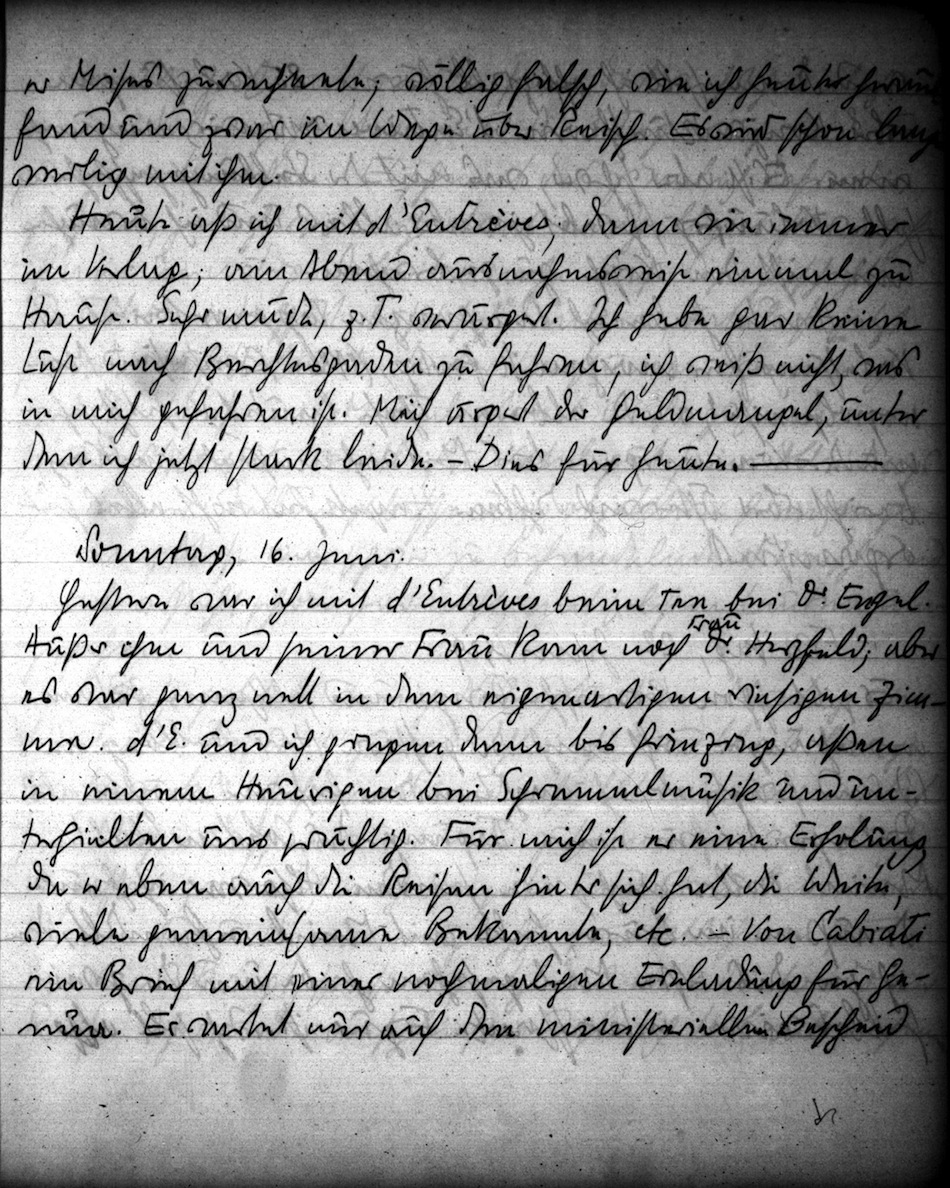 er Mises zurechnete; völlig falsch, wie ich heute heraus
fand und zwar im Wege über Reisch. Es wird schon lang
weilig mit ihm.
Heute aß ich mit d'Entrèves; dann wie immer
im Verlag; am Abend ausnahmsweise einmal zu
Hause. Sehr müde, z.T. verärgert. Ich habe gar keine
Lust nach Berchtesgaden zu fahren, ich weiß nicht, was
in mich gefahren ist. Mich ärgert der Geldmangel, unter
dem ich jetzt stark leide. – Dies für heute. ———
Sonntag, 16. Juni.
Gestern war ich mit d'Entrèves beim Tee bei Dr. Engel.
Außer ihm und seiner Frau kam noch Frau Dr. Herzfeld; aber
es war ganz nett in dem eigenartigen riesigen Zim-
mer. d'E. und ich gingen dann bis Grinzing, aßen
in einem Heurigen bei Schrammelmusik und un-
terhielten uns prächtig. Für mich ist er eine Erholung,
da er eben auch die Reisen hinter sich hat, die Weite,
viele gemeinsame Bekannte, etc. – Von Cabiati
ein Brief mit einer nochmaligen Einladung für Ge-
nua. Er wartet nur auf den ministeriellen Bescheid